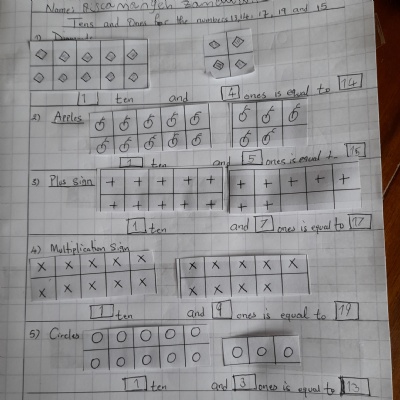 Name:
Tens and Ones for the numbers 13, 14, 17, 19 and 15
1)
1 ten and 4 ones is equal to 14
2) Apples
1 ten and 5 ones is equal to 15
3) Plus sign
1 ten and 7 ones is equal to 17
4) Multiplication sign
1 ten and 9 ones is equal to 19
5) Circles
1 ten and 3 ones is equal to 13